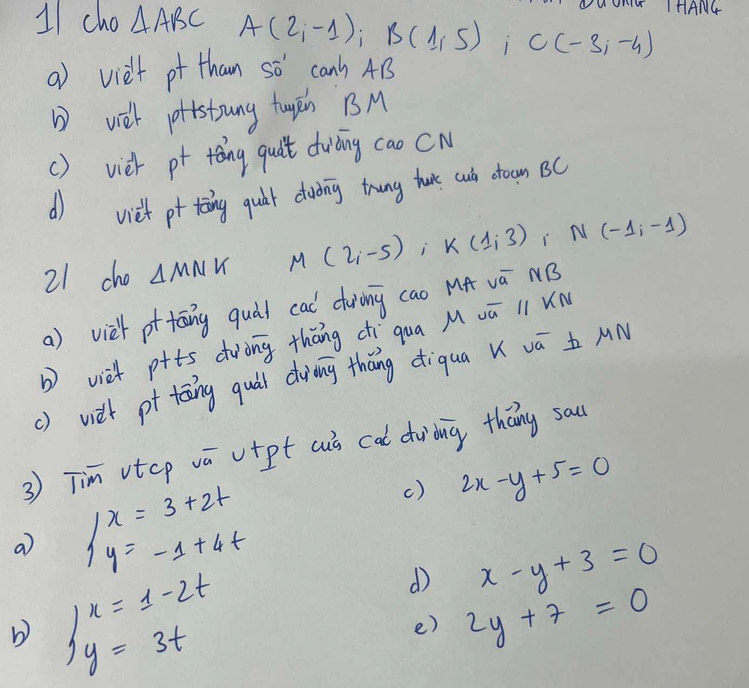 ĐƯỜNG THẲNG
1) cho ΔABC A(2;-1); B(1;5); C(-3;-4)
a) viết pt tham số cạnh AB
b) viết ptts trung tuyến BM
c) viết pt tổng quát đường cao CN
d) viết pt tổng quát đường trung trực của đoạn BC
2) cho ΔMNK M(2;-5); K(1;3); N(-1;-1)
a) viết pt tổng quát các đường cao MA và NB
b) viết ptts đường thẳng đi qua M và // KN
c) viết pt tổng quát đường thẳng đi qua K và ⊥ MN
3) Tìm vtcp và vtpt của các đường thẳng sau
a) { x = 3+2t
y = -1+4t
b) { x = 1-2t
y = 3t
c) 2x-y+5=0
d) x-y+3=0
e) 2y+7=0